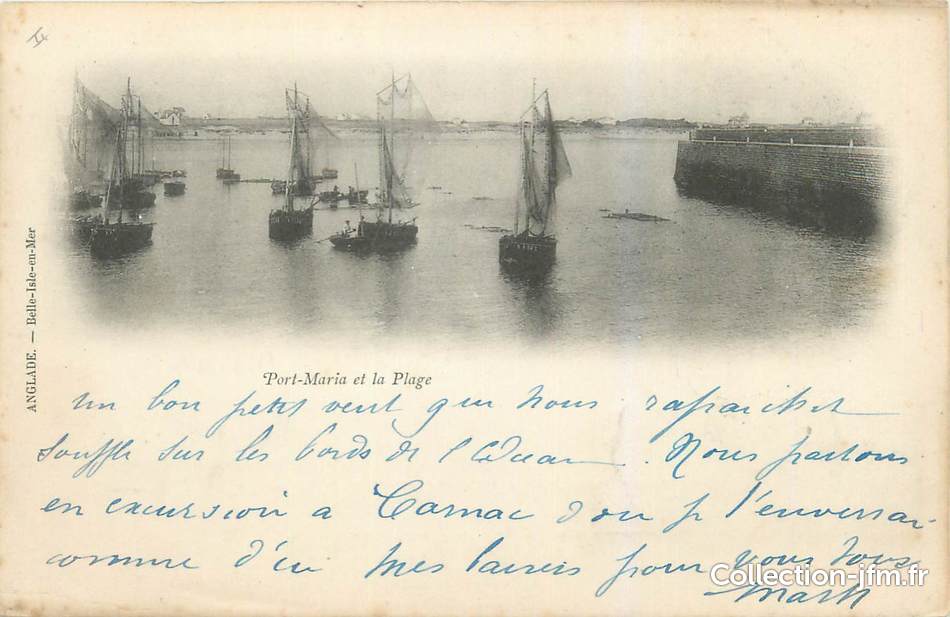 ANGLADE. — Belle-Isle-en-Mer
Port-Maria et la Plage
un bon petit vent qui nous rafraichit
souffle sur les bords de l'Océan. Nous partons
en excursion à Carnac d'ou je t'enverrai
comme d'ici mes baisers pour vous tous
Collection-jfm.fr